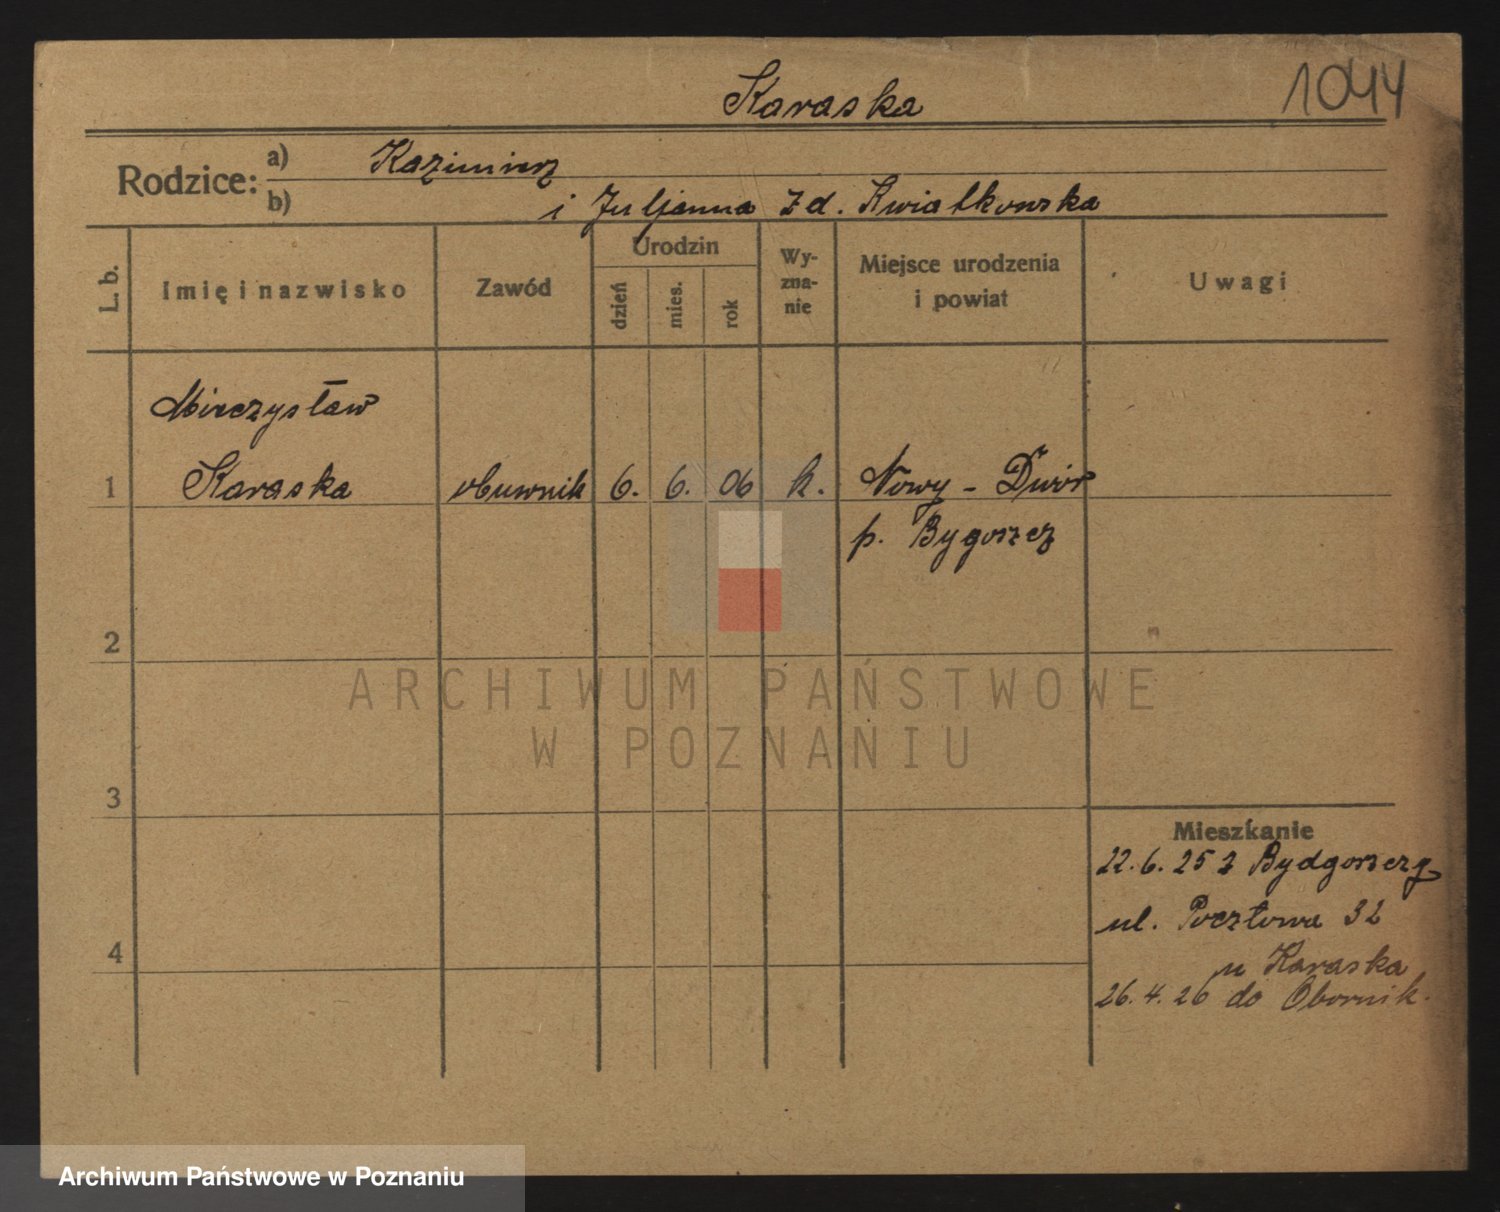 Karaska
1044
Rodzice:
a) Kazimierz
b) i Juljanna z d. Kwiatkowska
L. b.
Imię i nazwisko
Zawód
Urodzin
dzień
mies.
rok
Wy-
zna-
nie
Miejsce urodzenia
i powiat
Uwagi
Mieczysław
1 Karaska obuwnik 6. 6. 06 k. Nowy - Dwór
p. Bygoszcz
2
ARCHIWUM PAŃSTWOWE
W POZNANIU
3
Mieszkanie
22.6.25 z Bydgoszczy
ul. Pocztowa 32
u Karaska
4
26.4.26 do Obornik.
Archiwum Państwowe w Poznaniu